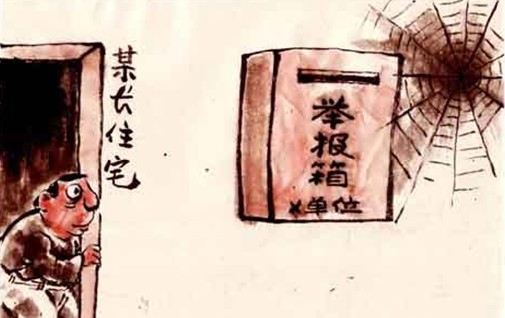 某长住宅
举报箱
×单位